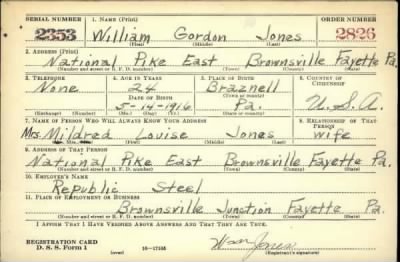 SERIAL NUMBER 1. NAME (Print) ORDER NUMBER
2353 William Gordon Jones 2826
(First) (Middle) (Last)
2. ADDRESS (Print)
National Pike East Brownsville Fayette Pa.
(Number and street or R. F. D. number) (Town) (County) (State)
3. TELEPHONE 4. AGE IN YEARS 5. PLACE OF BIRTH 6. COUNTRY OF CITIZENSHIP
None 24 Braznell
DATE OF BIRTH (Town or county)
5-14-1916 Pa. U.S.A.
(Exchange) (Number) (Mo.) (Day) (Yr.) (State or country)
7. NAME OF PERSON WHO WILL ALWAYS KNOW YOUR ADDRESS 8. RELATIONSHIP OF THAT PERSON
Mrs. Mildred Louise Jones wife
(Mr., Mrs., Miss) (First) (Middle) (Last)
9. ADDRESS OF THAT PERSON
National Pike East Brownsville Fayette Pa.
(Number and street or R. F. D. number) (Town) (County) (State)
10. EMPLOYER'S NAME
Republic Steel
11. PLACE OF EMPLOYMENT OR BUSINESS
Brownsville Junction Fayette Pa.
(Number and street or R. F. D. number) (Town) (County) (State)
I AFFIRM THAT I HAVE VERIFIED ABOVE ANSWERS AND THAT THEY ARE TRUE.
REGISTRATION CARD
D. S. S. Form 1 (over) 16-17105 Wm Jones
(Registrant's signature)